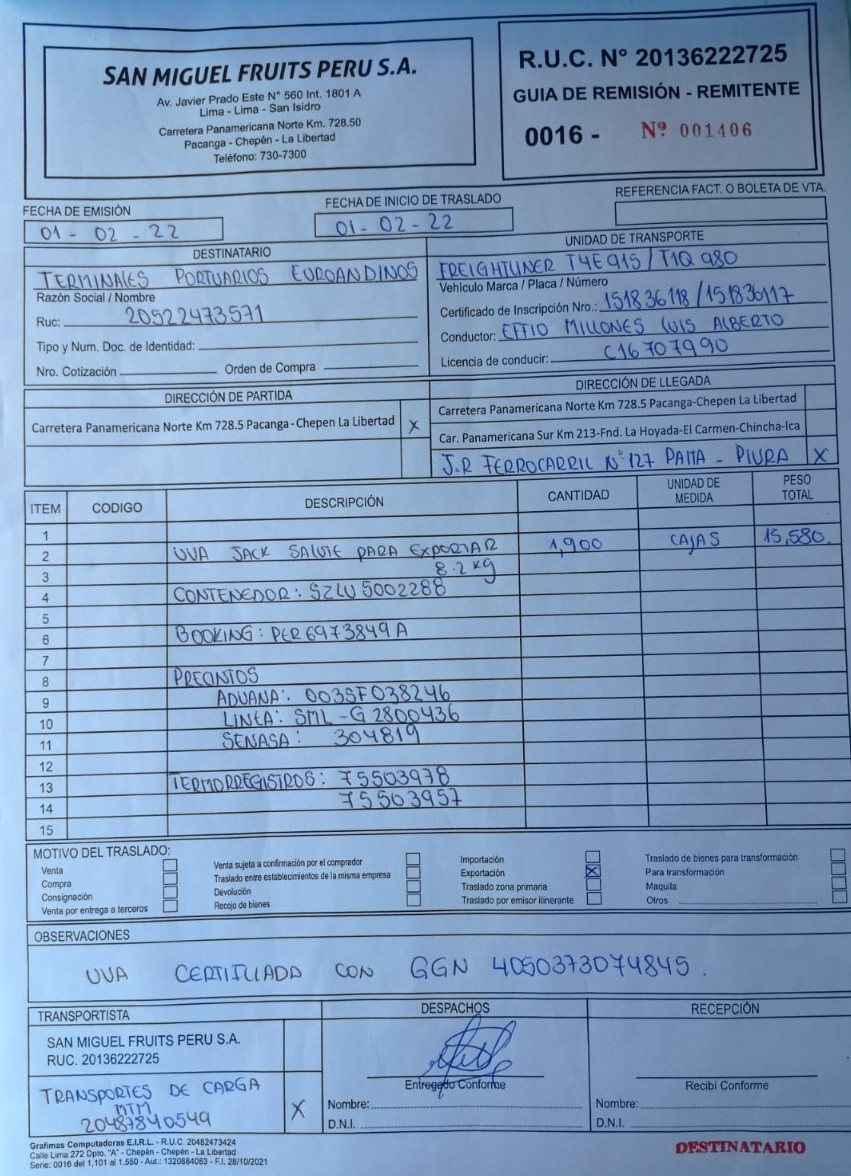 SAN MIGUEL FRUITS PERU S.A.
Av. Javier Prado Este N° 560 Int. 1801 A
Lima - Lima - San Isidro
Carretera Panamericana Norte Km. 728.50
Pacanga - Chepén - La Libertad
Teléfono: 730-7300
R.U.C. N° 20136222725
GUIA DE REMISIÓN - REMITENTE
0016 - Nº 001406
FECHA DE EMISIÓN
01 - 02 - 22
FECHA DE INICIO DE TRASLADO
01 - 02 - 22
REFERENCIA FACT. O BOLETA DE VTA.
DESTINATARIO
TERMINALES PORTUARIOS EUROANDINOS
Razón Social / Nombre
Ruc: 20522473571
Tipo y Num. Doc. de Identidad:
Nro. Cotización Orden de Compra
UNIDAD DE TRANSPORTE
FREIGHTLINER T4E915 / T1Q 980
Vehículo Marca / Placa / Número
Certificado de Inscripción Nro.: 151836118 / 151836117
Conductor: EFFIO MILLONES LUIS ALBERTO
Licencia de conducir: C16707990
DIRECCIÓN DE PARTIDA
Carretera Panamericana Norte Km 728.5 Pacanga - Chepen La Libertad X
DIRECCIÓN DE LLEGADA
Carretera Panamericana Norte Km 728.5 Pacanga-Chepen La Libertad
Car. Panamericana Sur Km 213-Fnd. La Hoyada-El Carmen-Chincha-Ica
J.R FERROCARRIL N° 127 PAITA - PIURA X
ITEM CODIGO DESCRIPCIÓN CANTIDAD UNIDAD DE MEDIDA PESO TOTAL
1
2 UVA JACK SALUTE PARA EXPORTAR 1,900 CAJAS 15,580.
3 8.2 Kg
4 CONTENEDOR: SZLU 5002288
5
6 BOOKING: PER6973849A
7
8 PRECINTOS
9 ADUANA: 003SF038246
10 LINEA: SML - G 2800436
11 SENASA: 304819
12
13 TERMORREGISTROS: 75503978
14 75503957
15
MOTIVO DEL TRASLADO:
Venta
Compra
Consignación
Venta por entrega a terceros
Venta sujeta a confirmación por el comprador
Traslado entre establecimientos de la misma empresa
Devolución
Recojo de bienes
Importación
Exportación X
Traslado zona primaria
Traslado por emisor itinerante
Traslado de bienes para transformación
Para transformación
Maquila
Otros
OBSERVACIONES
UVA CERTIFICADA CON GGN 4050373074845.
TRANSPORTISTA
SAN MIGUEL FRUITS PERU S.A.
RUC. 20136222725
TRANSPORTES DE CARGA
MTM
20487840549
X
DESPACHOS
Entregado Conforme
Nombre:
D.N.I.
RECEPCIÓN
Recibi Conforme
Nombre:
D.N.I.
Grafimas Computadoras E.I.R.L. - R.U.C. 20482473424
Calle Lima 272 Dpto. "A" - Chepén - Chepén - La Libertad
Serie: 0016 del 1,101 al 1,550 - Aut.: 1320884063 - F.I. 28/10/2021
DESTINATARIO